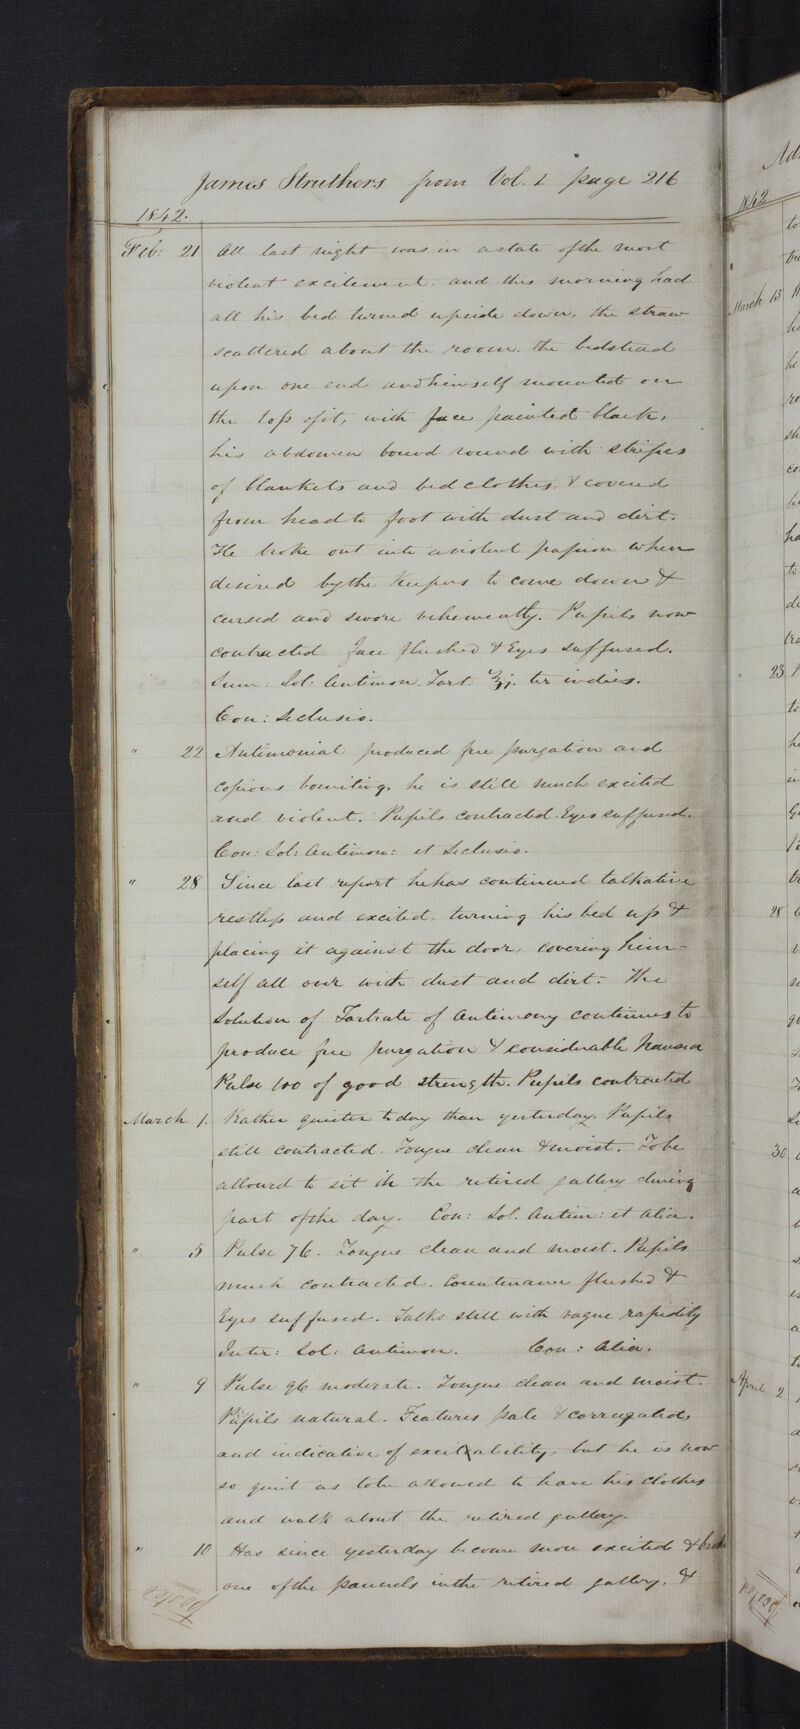 James Struthers from Vol. 1 page 216
1842.
Feb: 21 All last night was in a state of the most
violent excitement, and this morning had
all his bed turned upside down, the straw
scattered about the room, the bedstead
upon one end and himself mounted on
the top of it, with face painted black,
his abdomen bound round with stripes
of blankets and bed clothes, & covered
from head to foot with dust and dirt.
He broke out into a violent passion when
desired by the Keepers to come down &
cursed and swore vehemently. Pupils now
contracted face flushed & Eyes suffused.
Sum: Sol: Antimon. Tart: ℥j. ter indies.
Con: Seclusio.
" 22 Antimonial produced free purgation and
copious vomiting, he is still much excited
and violent. Pupils contracted. Eyes suffused.
Con: Sol: Antimon: et Seclusio.
" 28 Since last report he has continued talkative
restless and excited, turning his bed up &
placing it against the door, covering him-
self all over with dust and dirt. The
Solution of Tartrate of Antimony continues to
produce free purgation & considerable Nausea
Pulse 100 of good strength. Pupils contracted
March 1. Rather quieter today than yesterday. Pupils
still contracted. Tongue clean & moist. To be
allowed to sit in the retired gallery during
part of the day. Con: Sol. Antim: et Alia.
" 5 Pulse 76. Tongue clean and moist. Pupils
much contracted. Countenance flushed &
Eyes suffused. Talks still with vague rapidity
Inter: Sol: Antimon. Con: Alia.
" 9 Pulse 96 moderate. Tongue clean and moist.
Pupils natural. Features pale & corrugated,
and indicative of excitability, but he is now
so quiet as to be allowed to have his clothes
and walk about the retired gallery.
" 10 Has since yesterday become more excited & broke
one of the pannels in the retired gallery, &
1842
March 15
" 23
28
30
April 2